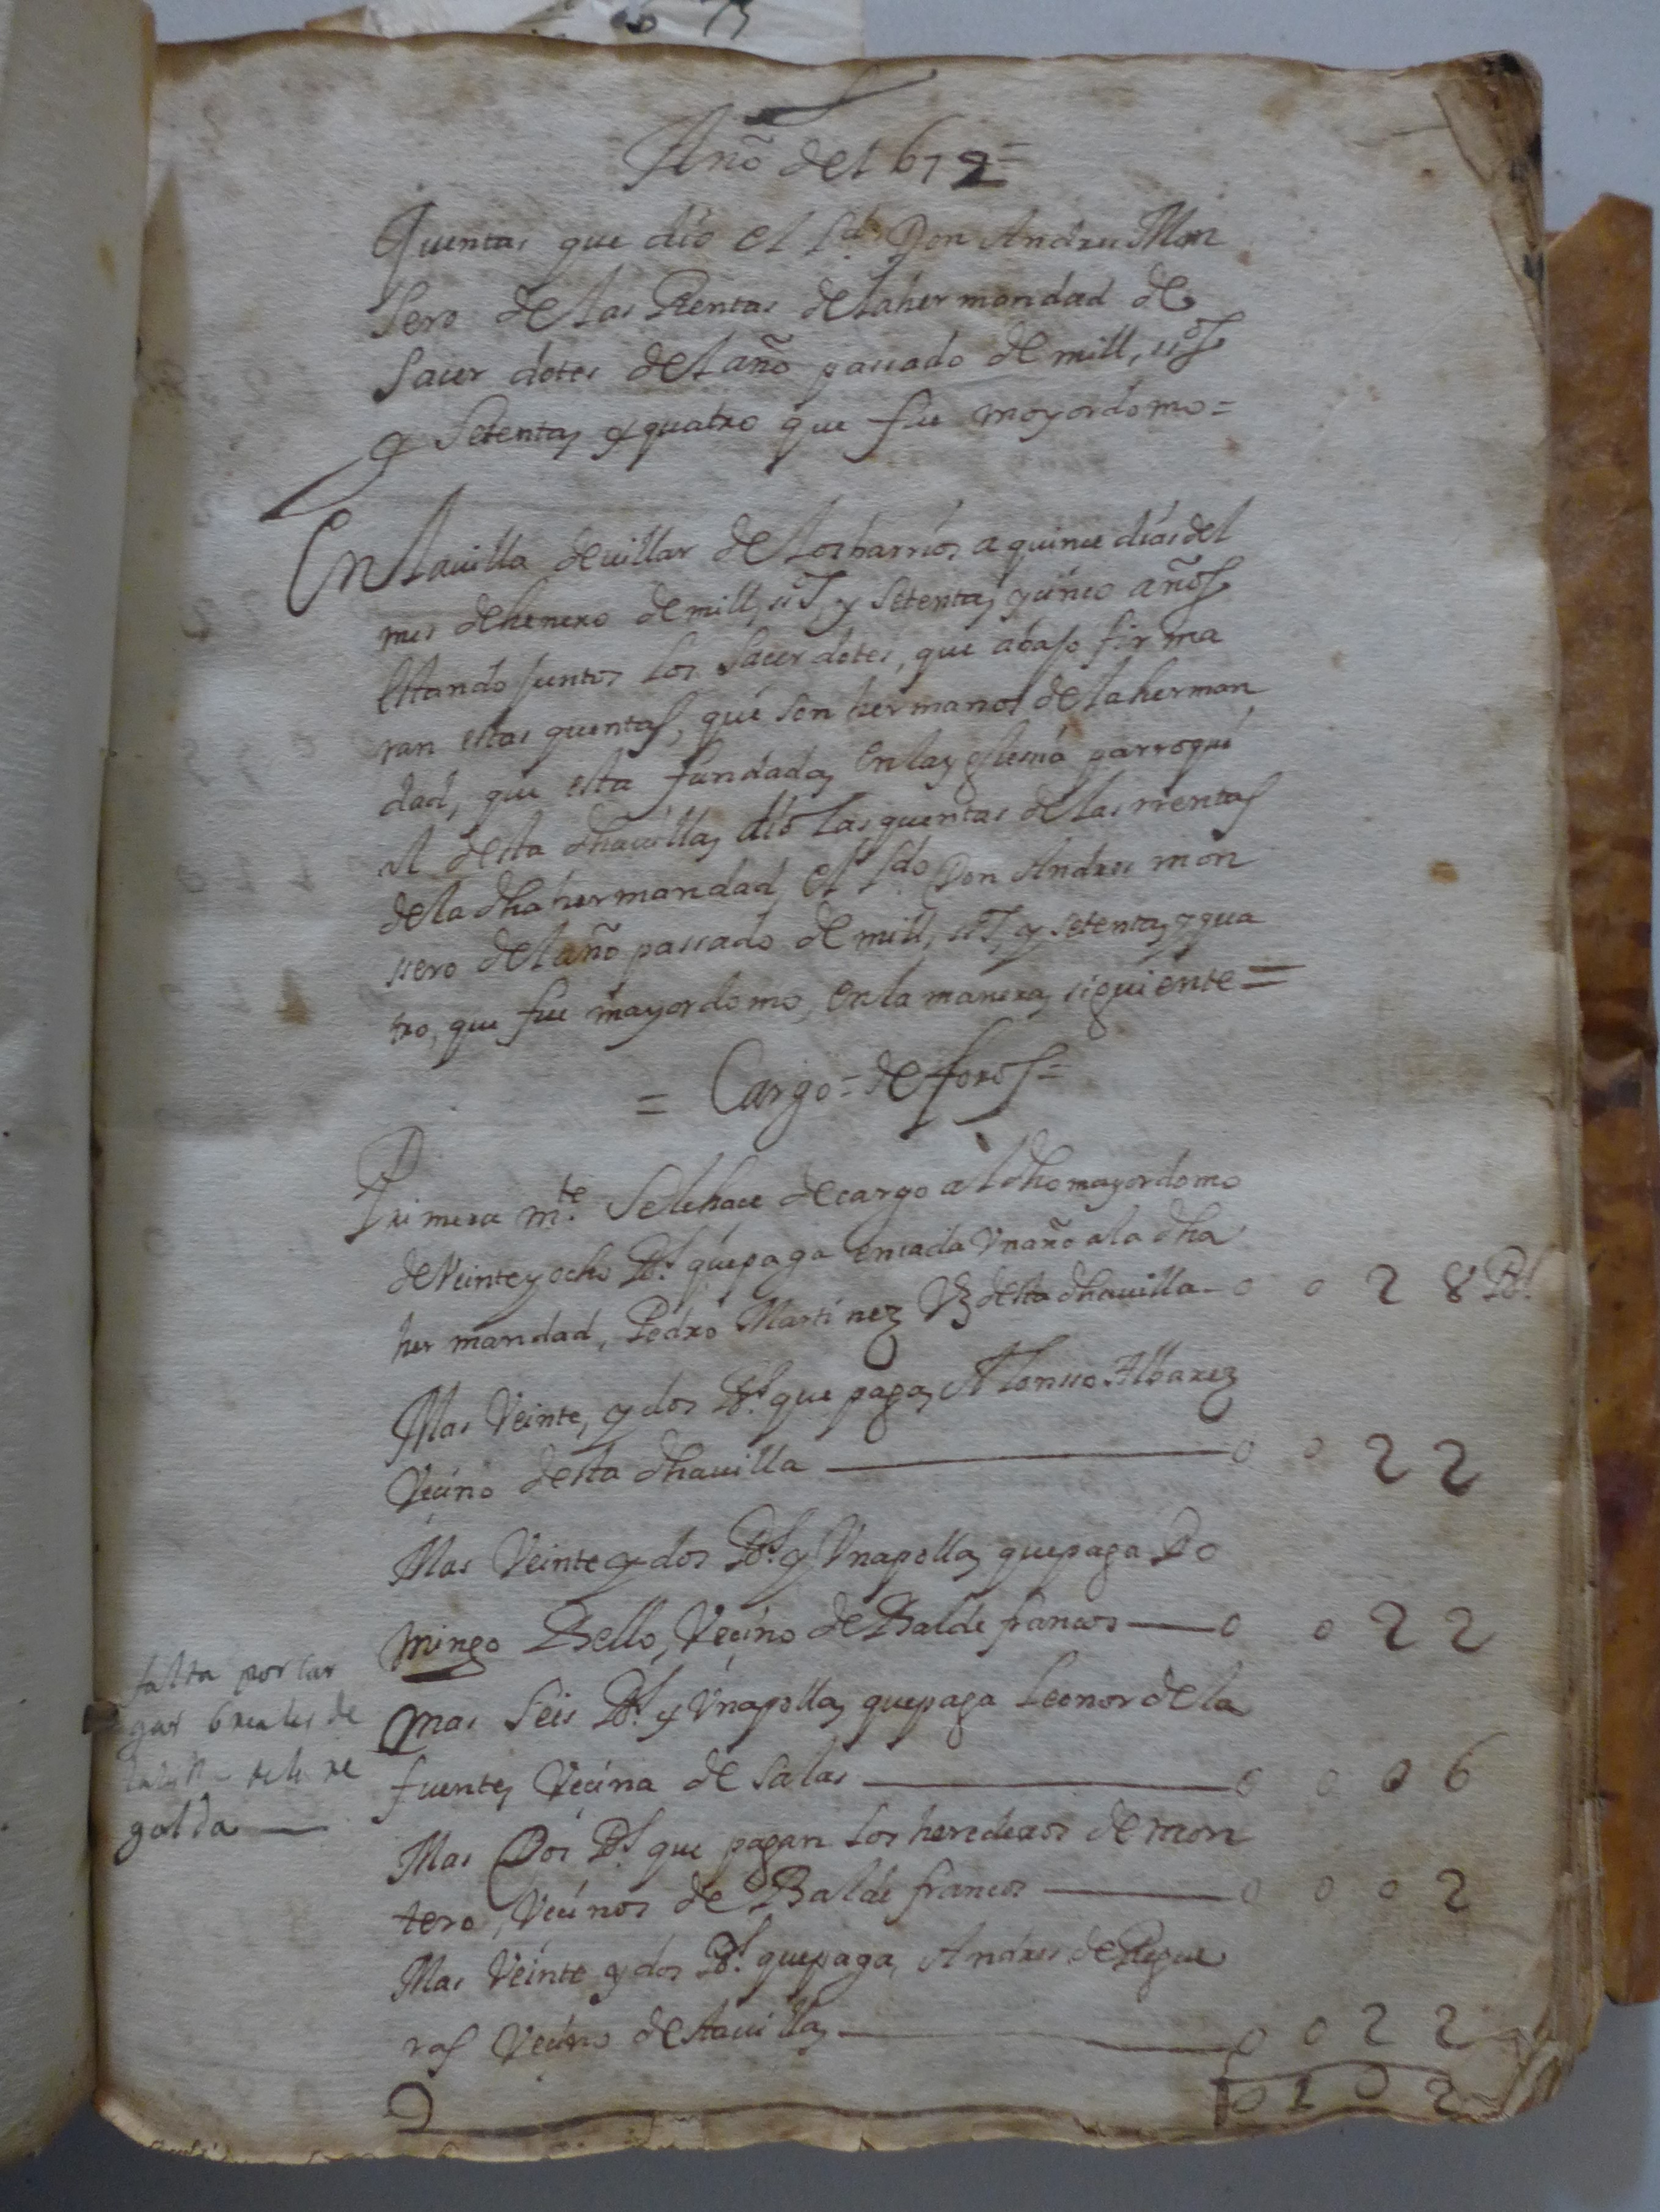 Año de 1672=
Quentas que dio el Ldo Don Andres Mon
sero de las Rentas de la hermandad de
Sacerdotes del año passado de mill, ssos
y Setenta, y quatro que fue mayordomo=
En la uilla de uillar de los barrios a quince dias del
mes de henero de mill, ssos, y Setenta, y cinco años
estando juntos los Sacerdotes, que abajo firma
ran estas quentas, que son hermanos de la herman
dad, que esta fundada, en la yglesia parroqui
al desta dha uilla, dio las quentas de las rrentas
de la dha hermandad el Ldo Don Andres mon
ssero del año passado de mill, ssos, y setenta, y qua
tro, que fue mayordomo, en la manera, siguiente=
= Cargo = de foros =
Primera mte. Se le hace de cargo al dho mayordomo
de Veinte y ocho Rs. que paga en cada Un año a la dha
hermandad, Pedro Martinez Vº desta dha uilla - 0 0 2 8 Rs.
Mas Veinte, y dos Rs. que paga, Alonsso Albarez
Vecino desta dha uilla 0 0 2 2
Mas Veinte y dos Rs. y Una polla, que paga Do
mingo Bello, Vecino de Balde francos 0 0 2 2
mas Seis Rs. y Una polla, que paga Leonor de la
fuente, Vecina de Salas 0 0 0 6
Mas Dos Rs. que pagan los herederos de mon
tero, Vecinos de Balde francos 0 0 0 2
Mas Veinte y dos Rs. que paga, Andres de Regue
ras Vecino desta uilla, 0 0 2 2
0 1 0 2
falta por car
gar 6 reales de
galda